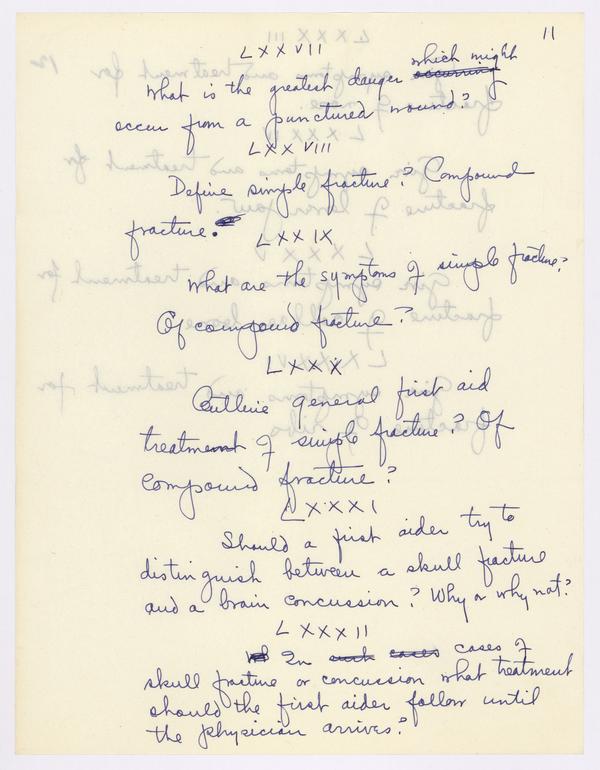 11
LXXVII
What is the greatest danger occurring which might
occur from a punctured wound?
LXXVIII
Define simple fracture? Compound
fracture.
LXXIX
What are the symptoms of simple fracture?
Of compound fracture?
LXXX
Outline general first aid
treatment of simple fracture? Of
compound fracture?
LXXXI
Should a first aider try to
distinguish between a skull fracture
and a brain concussion? Why or why not?
LXXXII
In such cases cases of
skull fracture or concussion what treatment
should the first aider follow until
the physician arrives?